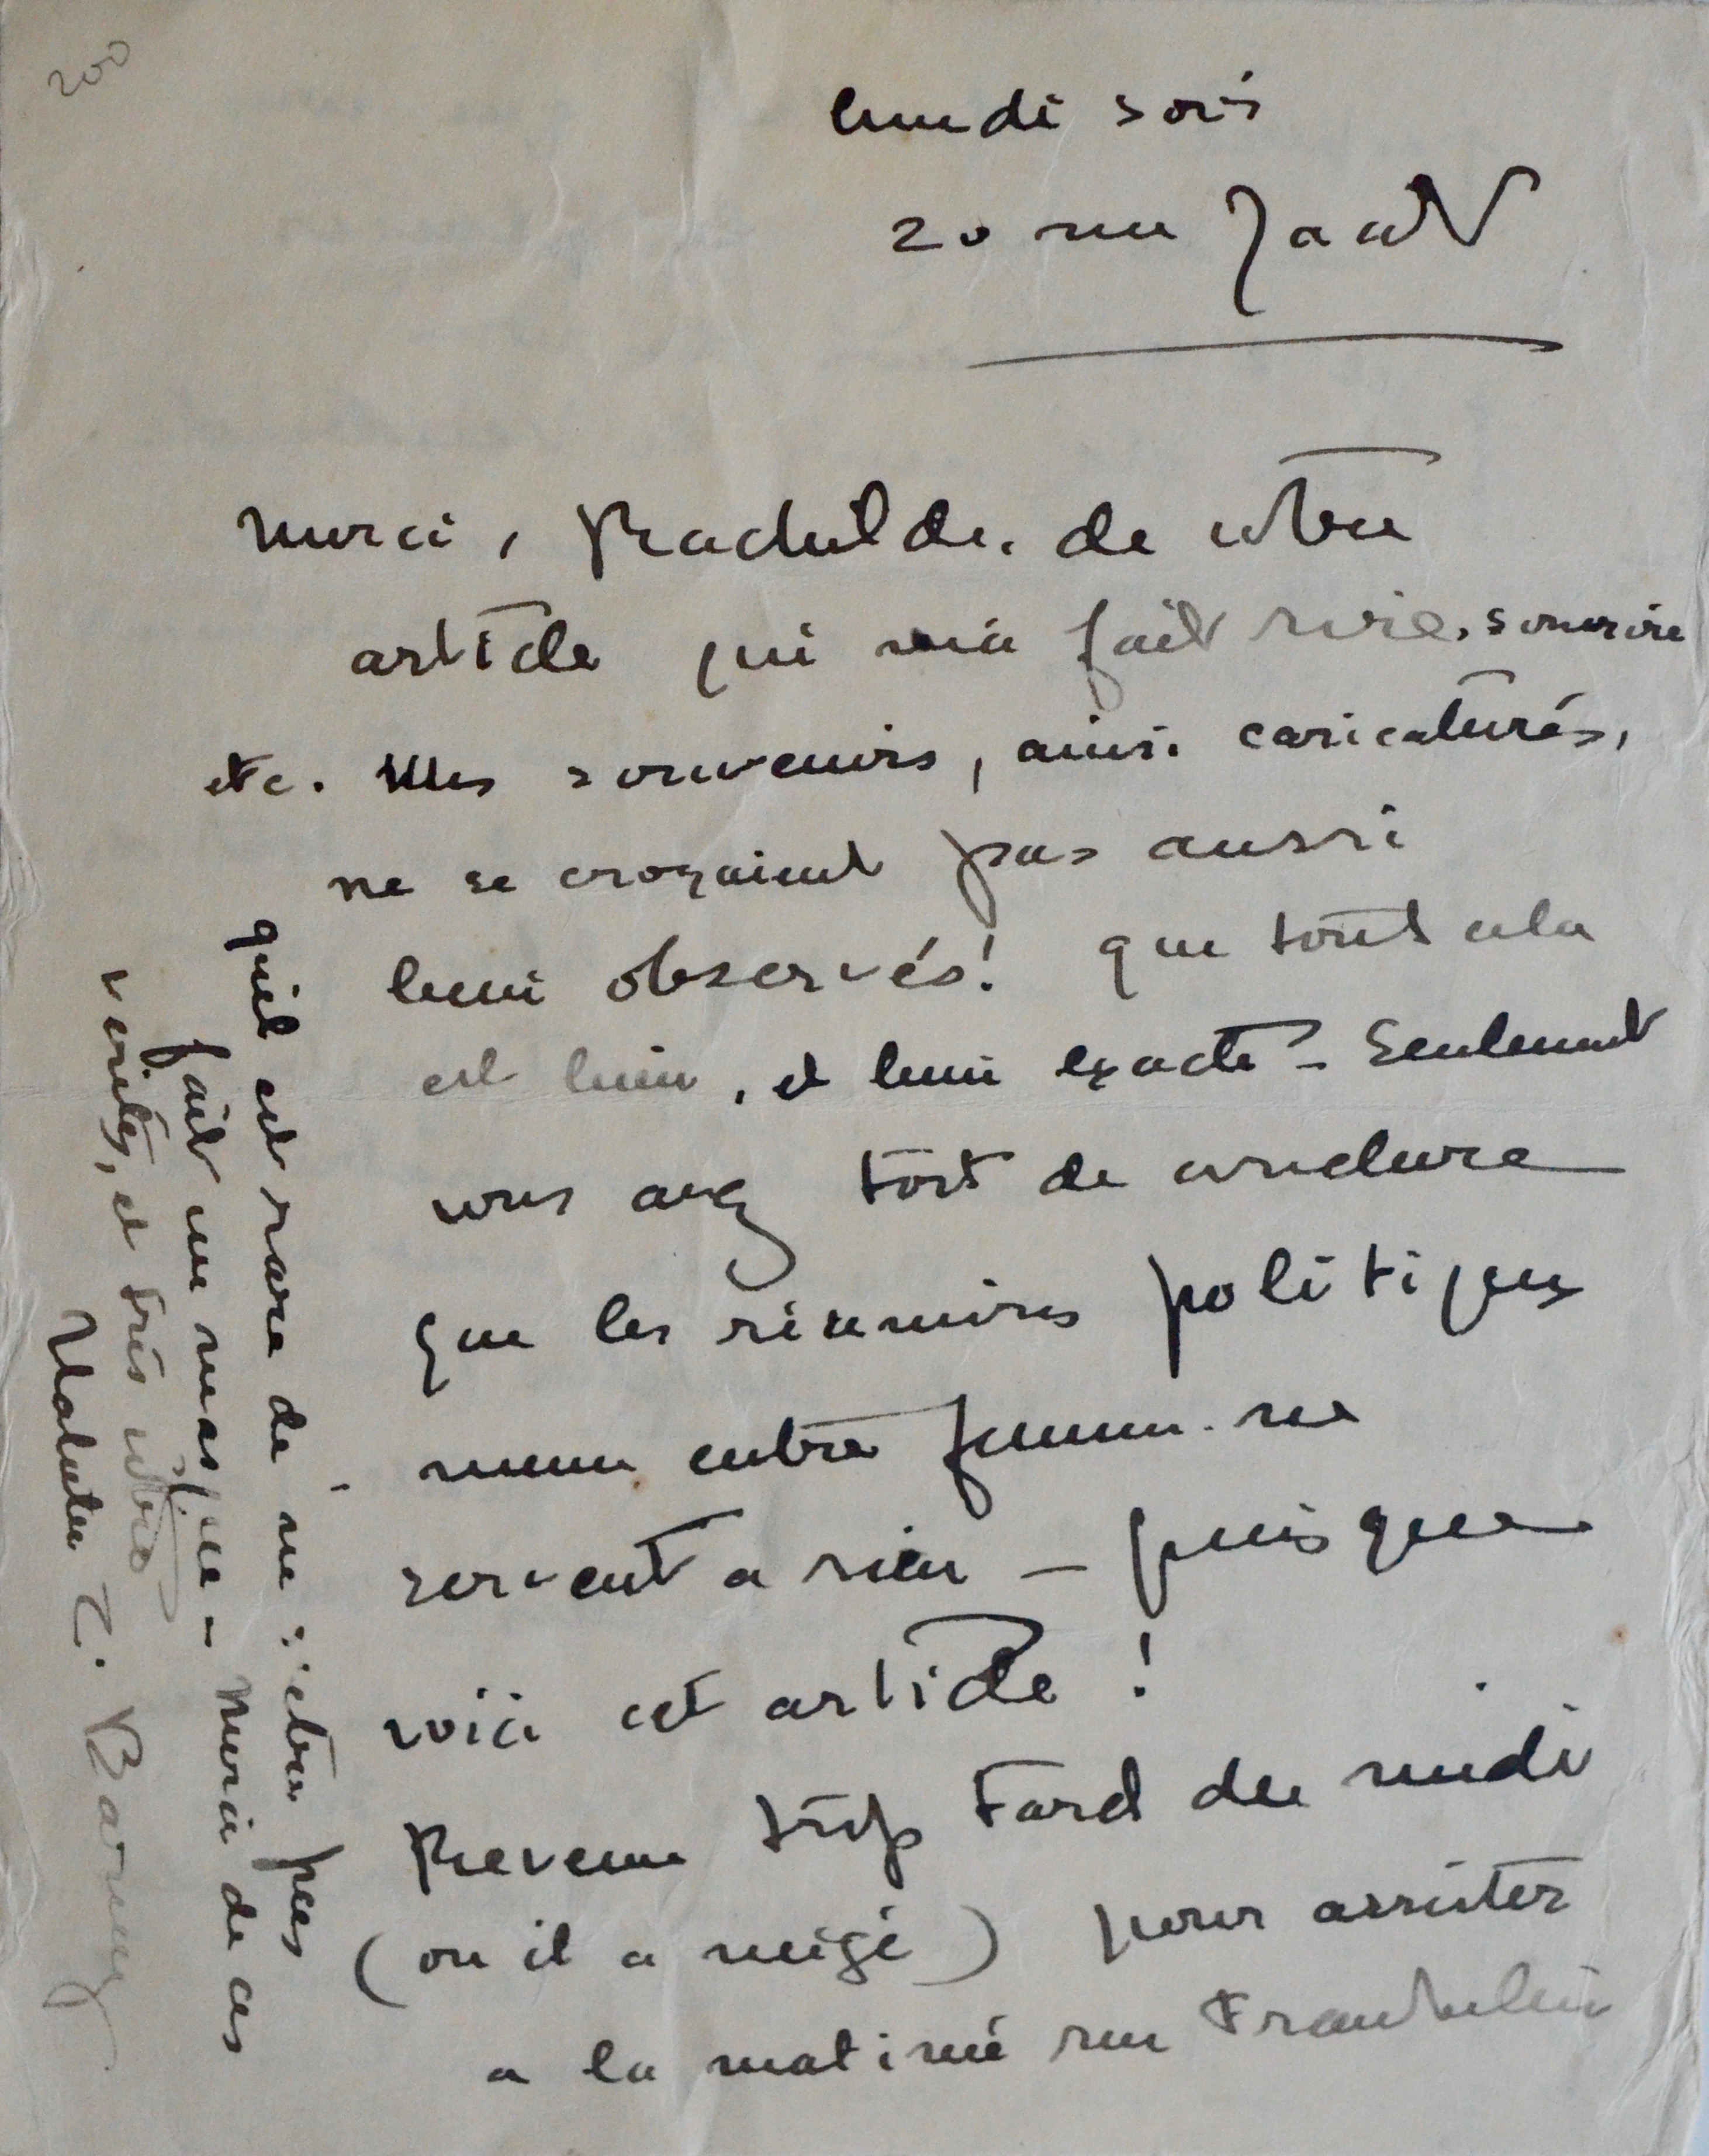 200
lundi soir
20 rue Jacob
Merci, Rachilde, de votre
article qui m'a fait rire, sourire
etc. Mes souvenirs, ainsi caricaturés,
ne se croyaient pas aussi
bien observés! que tout cela
est bien, et bien exact - Seulement
vous avez tort de conclure
que les réunions politiques
même entre femmes ne
servent a rien - puisque
voici cet article !
Revenue trop tard du midi
(ou il a neigé) pour assister
a la matinée rue Franklin
qu'il est rare de ne s'être pas
fait un masque - Merci de ces
vérités, et très vôtre
Natalie C. Barney